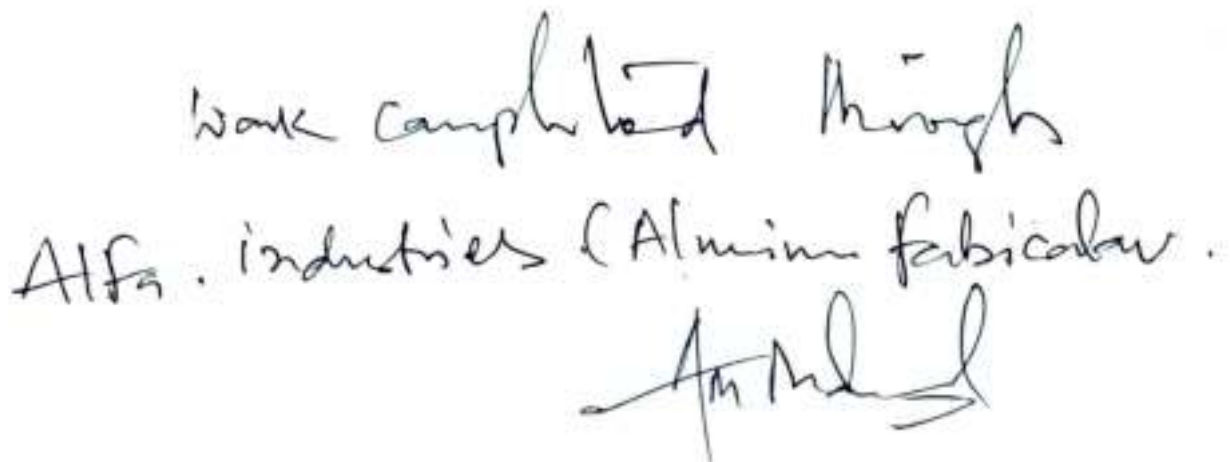 Work completed through
Alfa. industries (Alminim fabicator.